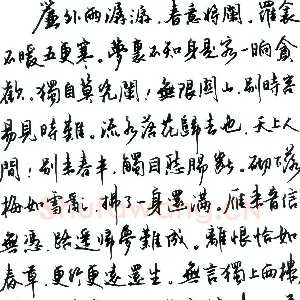 簾外雨潺潺,春意將闌。羅衾
不暖五更寒。夢裏不知身是客,一晌貪
歡。獨自莫凭闌!無限關山,別時容
易見時難。流水落花歸去也,天上人
間!別來春半,觸目愁腸斷。砌下落
梅如雪亂,拂了一身還滿。雁來音信
無憑,路遙歸夢難成。離恨恰如
春草,更行更遠還生。無言獨上西樓